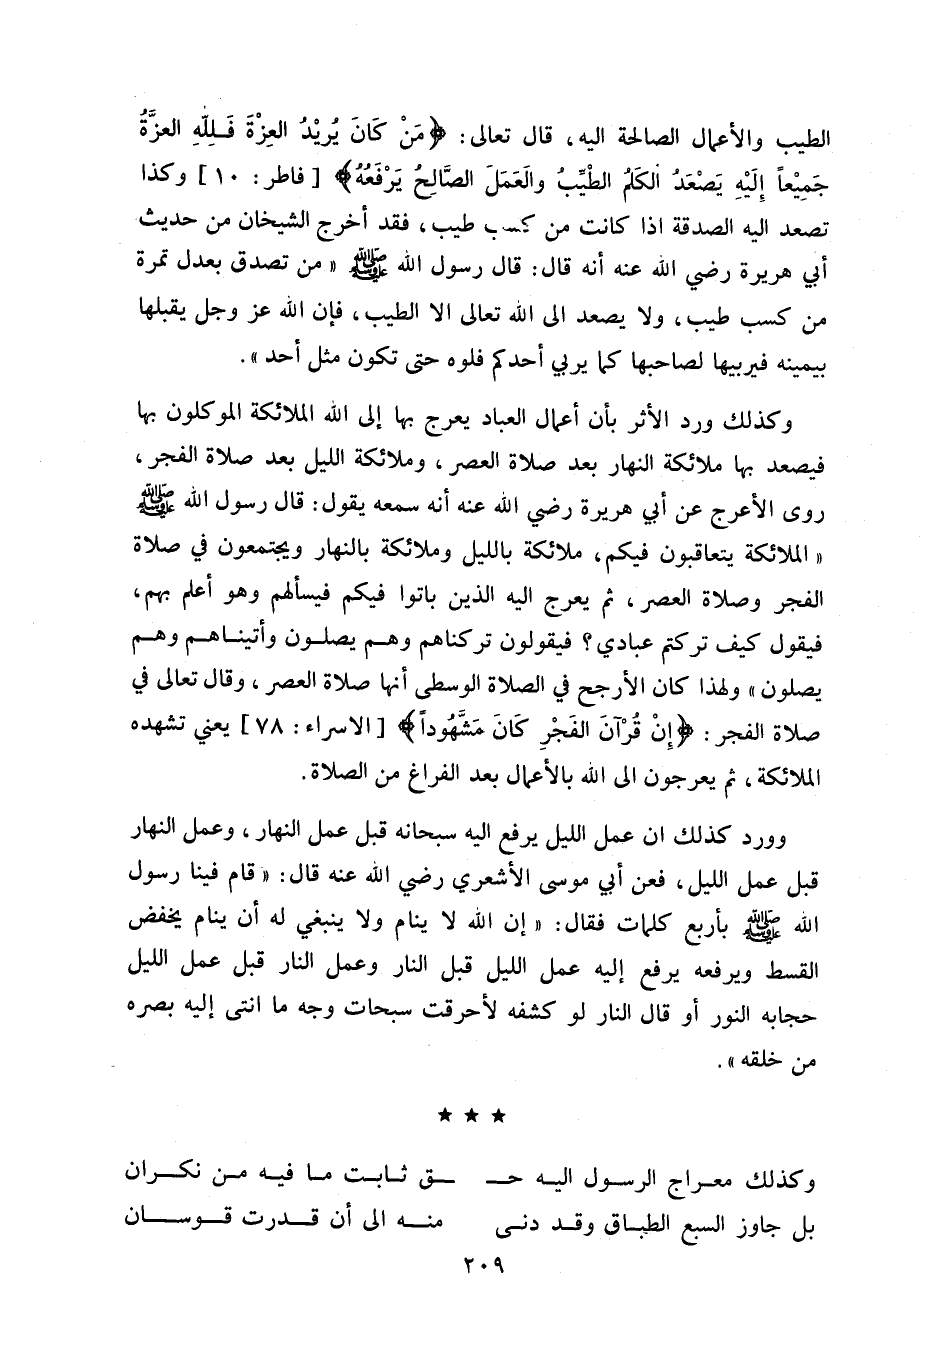 الطيب والأعمال الصالحة اليه، قال تعالى: ﴿مَنْ كَانَ يُرِيْدُ العِزَّةَ فَلِلّهِ العِزَّةُ
جَمِيْعاً إِلَيْهِ يَصْعَدُ الْكَلِمُ الطَّيِّبُ والْعَمَلُ الصَّالِحُ يَرْفَعُهُ﴾ [ فاطر: ١٠ ] وكذا
تصعد اليه الصدقة اذا كانت من كسب طيب، فقد أخرج الشيخان من حديث
أبي هريرة رضي الله عنه أنه قال: قال رسول الله ﷺ « من تصدق بعدل تمرة
من كسب طيب، ولا يصعد الى الله تعالى الا الطيب، فإن الله عز وجل يقبلها
بيمينه فيربيها لصاحبها كما يربي أحدكم فلوه حتى تكون مثل أحد ».
وكذلك ورد الأثر بأن أعمال العباد يعرج بها إلى الله الملائكة الموكلون بها
فيصعد بها ملائكة النهار بعد صلاة العصر، وملائكة الليل بعد صلاة الفجر،
روى الأعرج عن أبي هريرة رضي الله عنه أنه سمعه يقول: قال رسول الله ﷺ
« الملائكة يتعاقبون فيكم، ملائكة بالليل وملائكة بالنهار ويجتمعون في صلاة
الفجر وصلاة العصر، ثم يعرج اليه الذين باتوا فيكم فيسألهم وهو أعلم بهم،
فيقول كيف تركتم عبادي؟ فيقولون تركناهم وهم يصلون وأتيناهم وهم
يصلون » ولهذا كان الأرجح في الصلاة الوسطى أنها صلاة العصر، وقال تعالى في
صلاة الفجر: ﴿إِنْ قُرْآنَ الفَجْرِ كَانَ مَشْهُوداً﴾ [ الاسراء: ٧٨ ] يعني تشهده
الملائكة، ثم يعرجون الى الله بالأعمال بعد الفراغ من الصلاة.
وورد كذلك ان عمل الليل يرفع اليه سبحانه قبل عمل النهار، وعمل النهار
قبل عمل الليل، فعن أبي موسى الأشعري رضي الله عنه قال: « قام فينا رسول
الله ﷺ بأربع كلمات فقال: « إن الله لا ينام ولا ينبغي له أن ينام يخفض
القسط ويرفعه يرفع إليه عمل الليل قبل النار وعمل النار قبل عمل الليل
حجابه النور أو قال النار لو كشفه لأحرقت سبحات وجه ما انتى إليه بصره
من خلقه ».
★ ★ ★
وكذلك معراج الرسول اليه حـ ـق ثابت ما فيه من نكران
بل جاوز السبع الطباق وقد دنى منه الى أن قدرت قوسان
٢٠٩